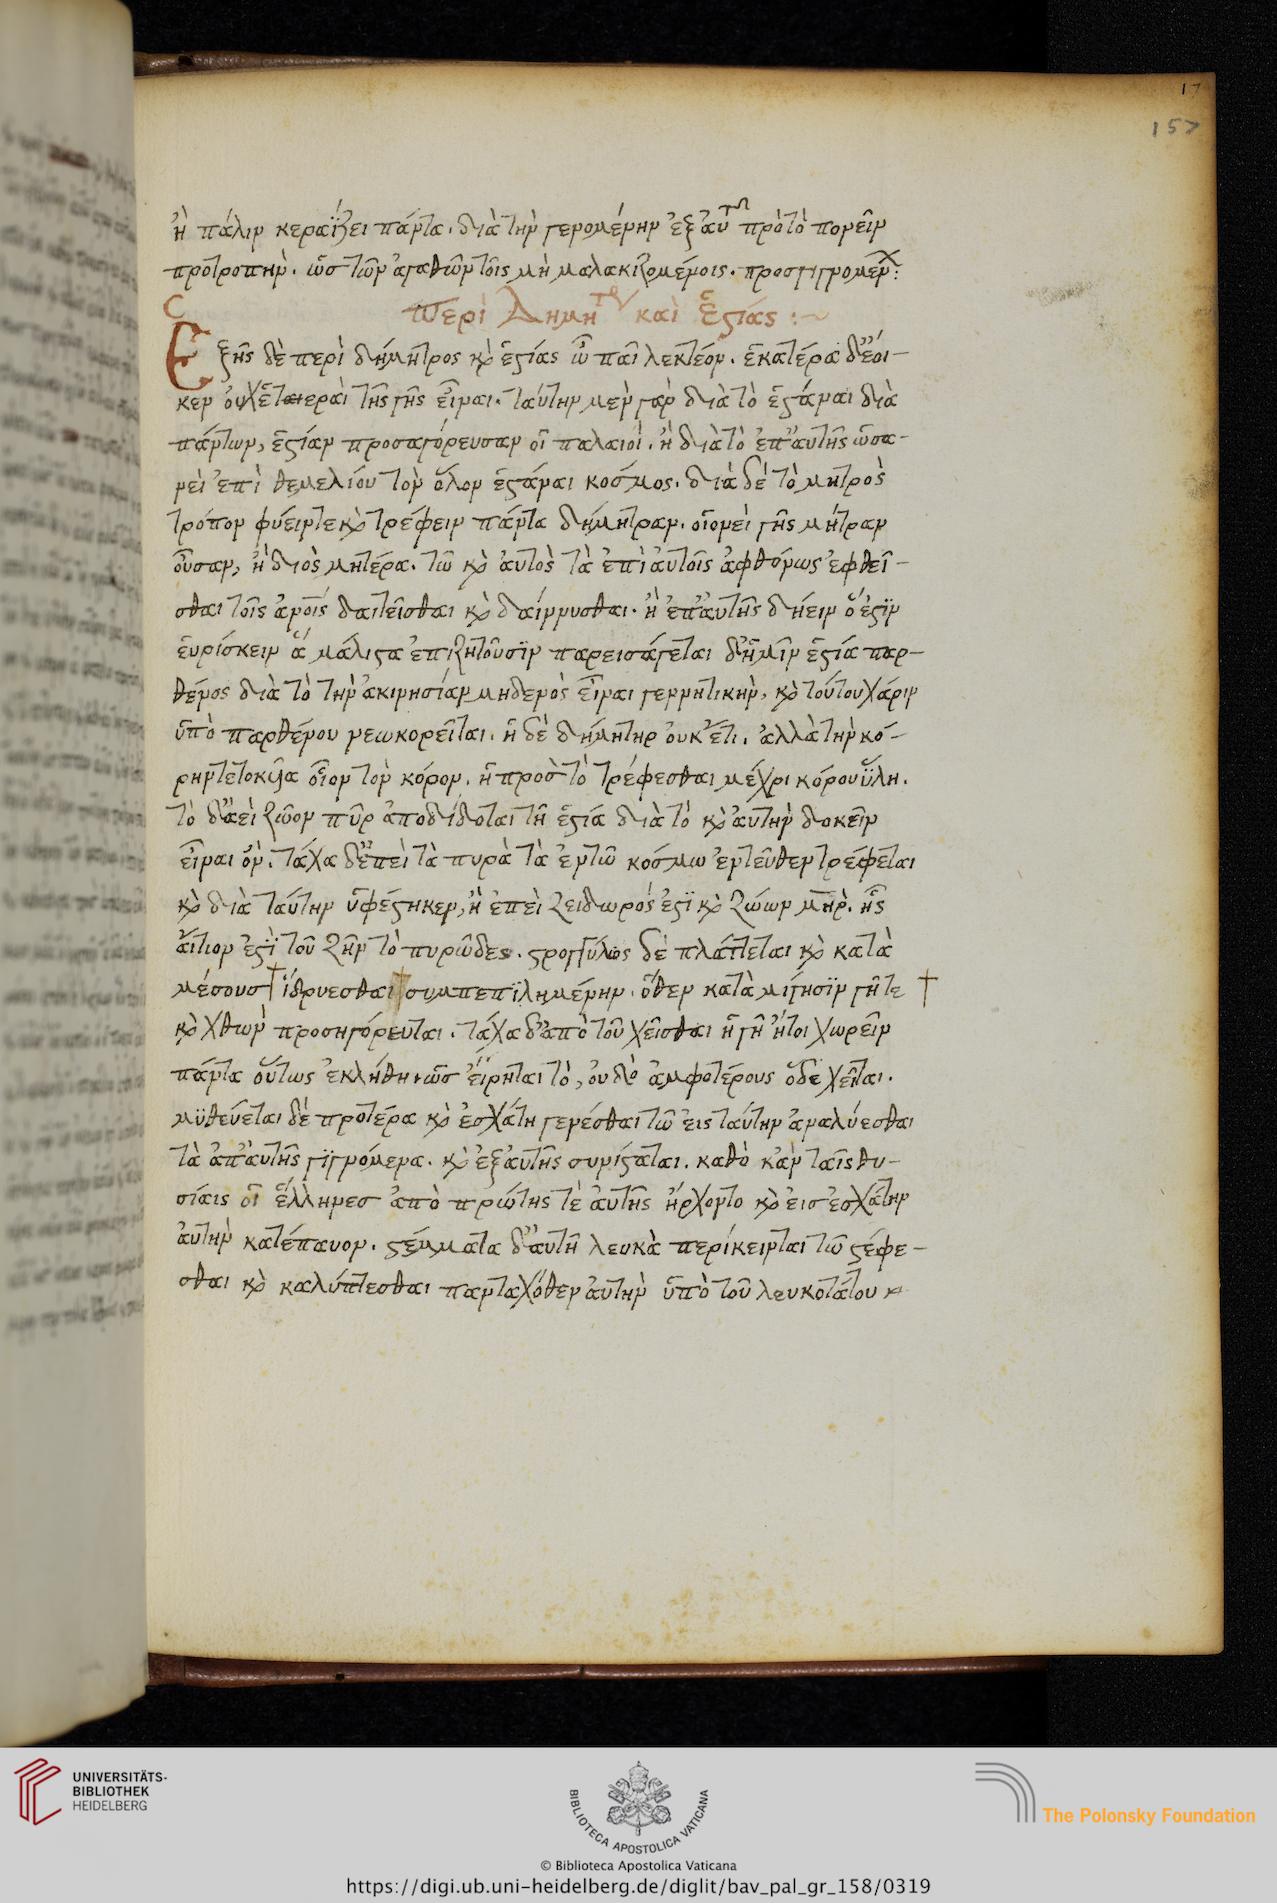 17
157
ἢ πάλιν κεραΐζει πάντα. διὰ τὴν γενομένην ἐξ αὐτῶν πρὸς τὸ πονεῖν
προτροπὴν. ὡς τῶν ἀγαθῶν τοῖς μὴ μαλακιζομένοις. προσγιγνομένων:
Περὶ Δήμητρος καὶ Ἑστίας :~
Ἑξῆς δὲ περὶ δήμητρος καὶ ἑστίας ὦ παῖ λεκτέον. ἑκατέρα δ' ἔοι-
κεν οὐχ ἑτέρα τῆς γῆς εἶναι. ταύτην μὲν γὰρ διὰ τὸ ἑστάναι διὰ
πάντων, ἑστίαν προσαγόρευσαν οἱ παλαιοί. ἢ διὰ τὸ ἐπ' αὐτῆς ὡσα-
νεὶ ἐπὶ θεμελίου τὸν ὅλον ἑστάναι κοσμος. διὰ δὲ τὸ μητρὸς
τρόπον φύειν τε καὶ τρέφειν πάντα δήμητραν. οἱονεὶ γῆς μήτραν
οὖσαν, ἢ διὸς μητέρα. τῶ καὶ αὐτὸς τὰ ἐπὶ αὐτοῖς ἀφθόνως ἐφθεῖ-
σθαι τοῖς ἀνοῖς δατεῖσθαι καὶ δαίννυσθαι. ἢ ἐπ' αὐτῆς δήειν ὅ ἐστὶν
εὑρίσκειν ἃ μάλιστα ἐπιζητοῦσϊν παρεισάγεται δ' ἡμῖν ἑστία παρ-
θένος διὰ τὸ τὴν ἀκινησίαν μηδενὸς εἶναι γεννητικὴν, καὶ τούτου χάριν
ὑπὸ παρθένου νεωκορεῖται. ἡ δὲ δήμητηρ οὐκ έτι. ἀλλὰ τὴν κό-
ρην τετοκῦια οἷον τὸν κόρον. ἡ πρὸς τὸ τρέφεσθαι μέχρι κόρου ὕλη.
τὸ δ' ἀεὶ ζῶον πῦρ ἀποδίδοται τῆ ἑστία διὰ τὸ καὶ αὐτὴν δοκεῖν
εἶναι ὂν. τάχα δ' ἐπεὶ τὰ πυρὰ τὰ ἐν τῶ κοσμω ἐντεῦθεν τρέφεται
καὶ διὰ ταύτην ὑφέστηκεν, ἢ ἐπεὶ ζείδωρος ἐστϊ καὶ ζώων μηρ. ἧς
αἴτιον ἐστϊ τοῦ ζῆν τὸ πυρῶδες. στρογγύλος δὲ πλάττεται καὶ κατὰ
μέσους † ἱδρυεσθαι † συμπεπϊλημένην. ὅθεν κατὰ μίγησϊν γῆ τε †
καὶ χθὼν προσηγόρευται. τάχα δ' ἀπὸ τοῦ χεῖσθαι ἡ γῆ ἤτοι χωρεῖν
πάντα οὕτως ἐκλήθη. ὡς εἴρηται τὸ, οὐδὸς ἀμφοτέρους ὅδε χεῖται.
μϋθεύεται δὲ προτέρα καὶ ἐσχάτη γενέσθαι τῶ εἰς ταύτην ἀναλύεσθαι
τὰ ἀπ' αὐτῆς γϊγνόμενα. καὶ ἐξ αὐτῆς συνίσταται. καθὸ κἀν ταῖς θυ-
σίαις οἱ ἕλληνες ἀπὸ πρώτης τὲ αὐτῆς ἤρχοντο καὶ εἰς ἐσχάτην
αὐτὴν κατέπαυον. στέμματα δ' αὐτῆ λευκὰ περίκεινται τῶ στέφε-
σθαι καὶ καλύπτεσθαι πανταχόθεν αὐτὴν ὑπὸ τοῦ λευκοτάτου
UNIVERSITÄTS-
BIBLIOTHEK
HEIDELBERG
BIBLIOTECA APOSTOLICA VATICANA
The Polonsky Foundation
© Biblioteca Apostolica Vaticana
https://digi.ub.uni-heidelberg.de/diglit/bav_pal_gr_158/0319